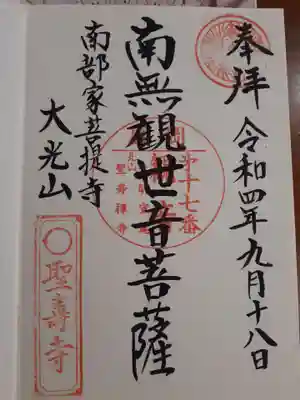 奉拝
令和四年九月十八日
南無観世音菩薩
第十七番
聖寿禅寺
南部家菩提寺
大光山
聖壽寺